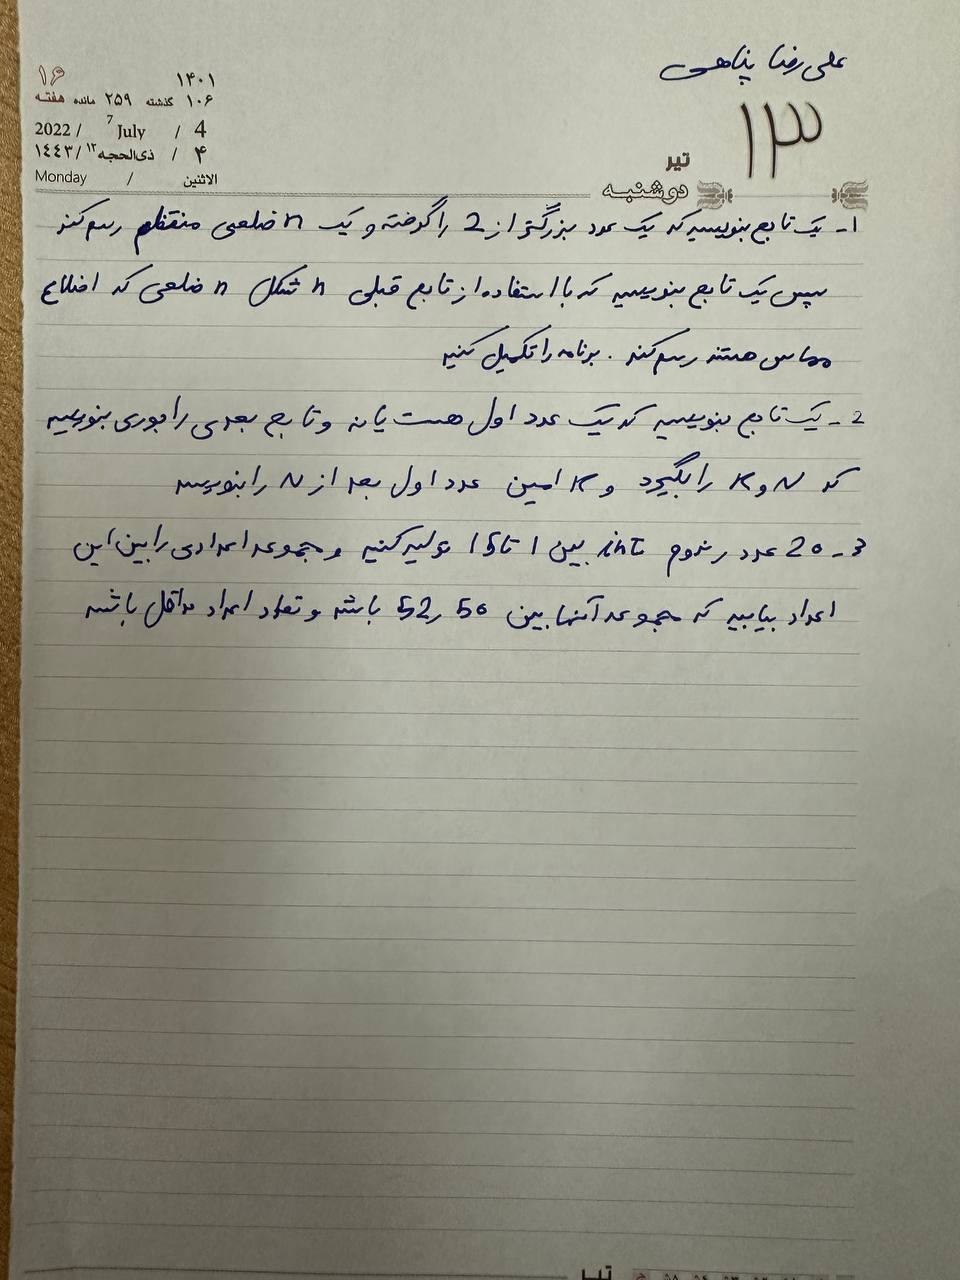 علی رضا پناهی
۱۶
۱۴۰۱
۱۰۶ گذشته ۲۵۹ مانده هفته
2022 / 7 July / 4
۱۴۴۳/۱۲ ذی‌الحجه / ۴
Monday / الاثنین
۱۳
تیر
دوشنبه
1- یک تابع بنویسید که یک عدد بزرگتر از 2 را گرفته و یک n ضلعی منتظم رسم کند
سپس یک تابع بنویسید که با استفاده از تابع قبلی n شکل n ضلعی که اضلاع
مماس هستند رسم کند . برنامه را تکمیل کنید
2- یک تابع بنویسید که یک عدد اول هست یا نه و تابع بعدی را جوری بنویسید
که N و K را بگیرد و K امین عدد اول بعد از N را بنویسد
3- 20 عدد رندوم int بین 1 تا 15 تولید کنید و مجموعه اعدادی را بین این
اعداد بیابید که مجموعه آنها بین 50 و 52 باشد و تعداد اعداد حداقل باشد
تیر